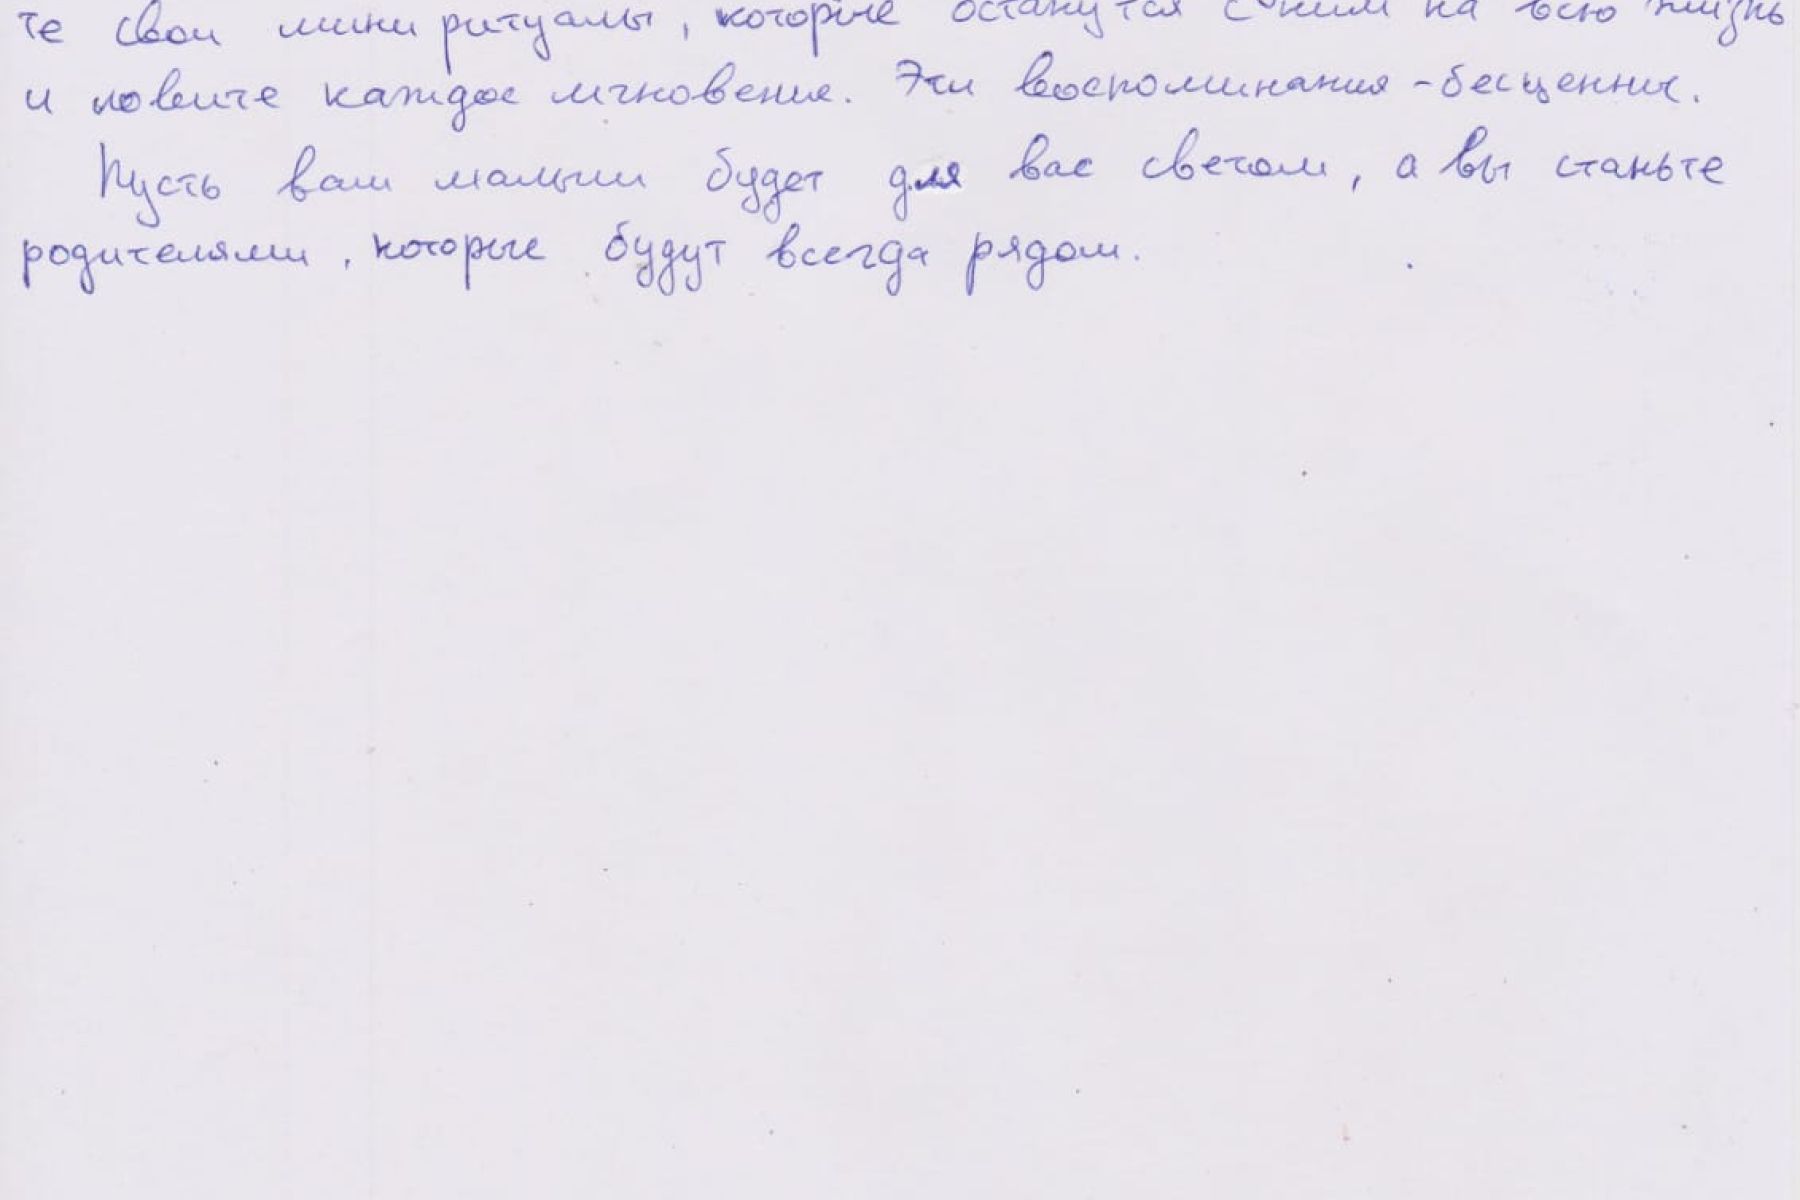 те свои мини ритуалы, которые останутся с ним на всю жизнь
и ловите каждое мгновение. Эти воспоминания - бесценны.
Пусть ваш малыш будет для вас светом, а вы станьте
родителями, которые будут всегда рядом.